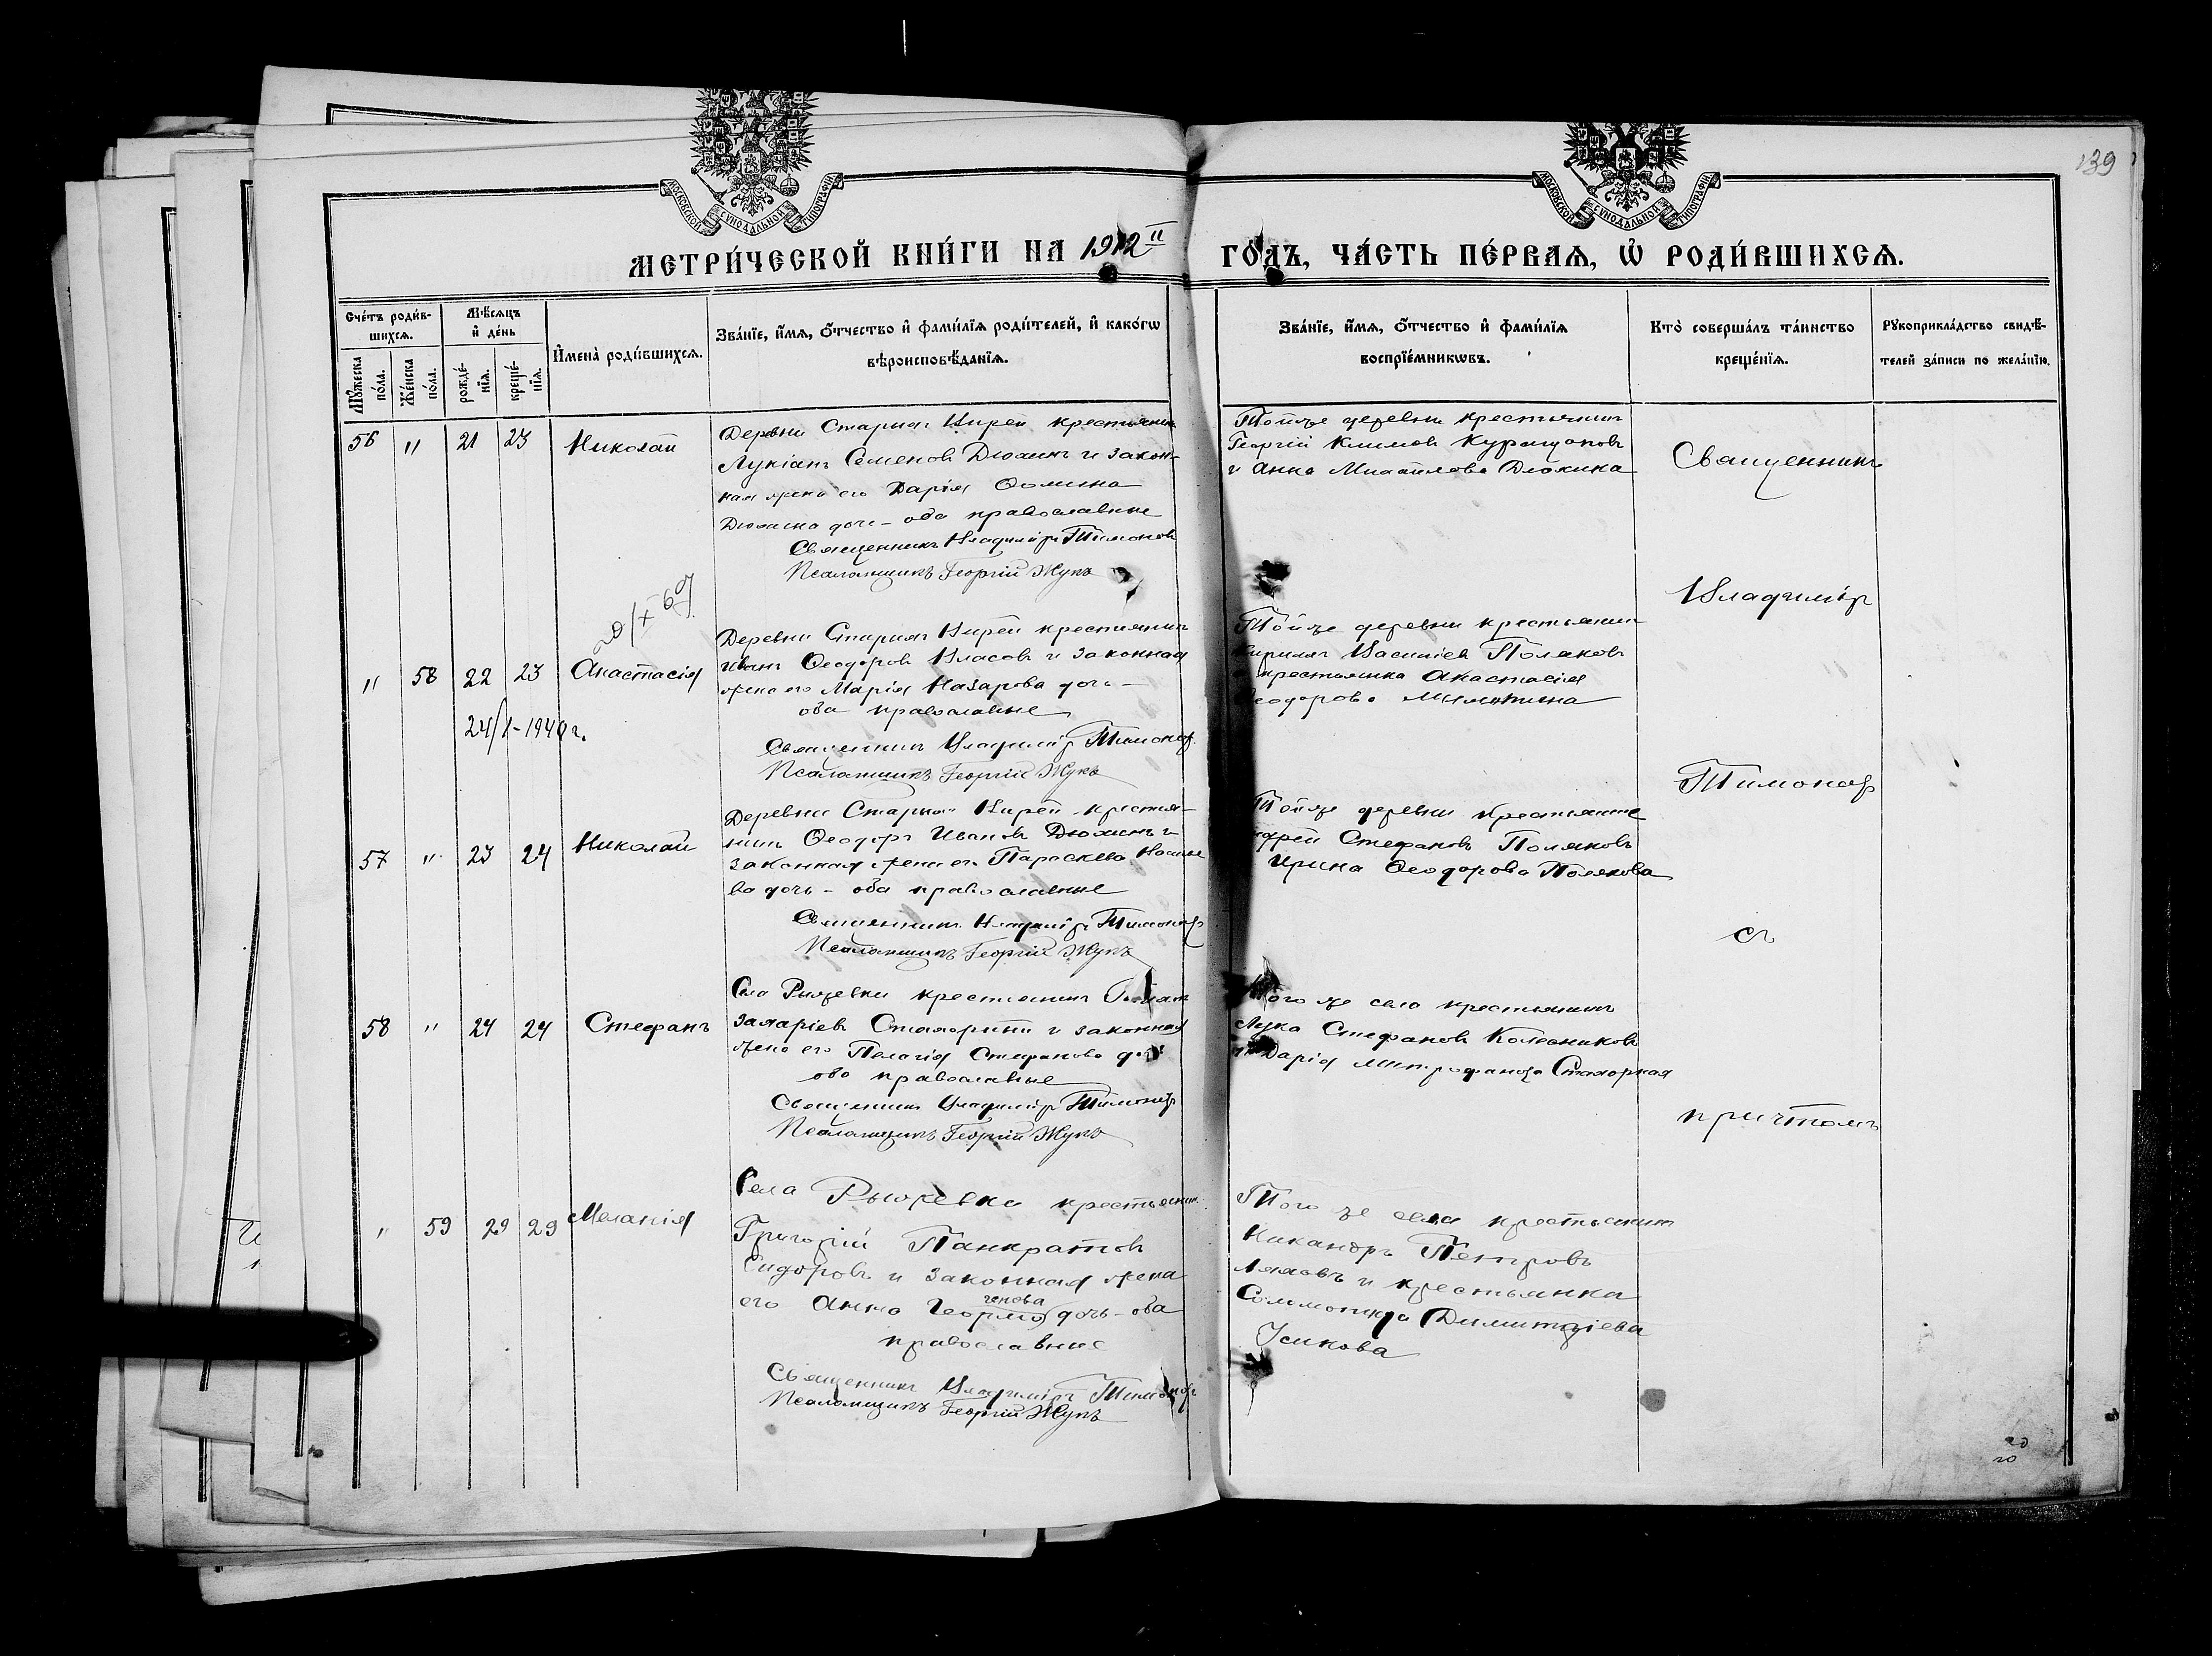 139
МОСКОВСКОЙ СѴНОДАЛЬНОЙ ТИПОГРАФІИ
МОСКОВСКОЙ СѴНОДАЛЬНОЙ ТИПОГРАФІИ
МЕТРИ́ЧЕСКОЙ КНИ́ГИ НА 1912 ГО́ДЪ, ЧА́СТЬ ПЕ́РВАѦ, Ѡ҆ РОДИ́ВШИХСѦ.
Сче́тъ роди́в-
шихсѧ.
Мꙋ́жеска по́ла.
Же́нска по́ла.
Мѣ́сѧцъ
и҆ де́нь
рожде́-
нїѧ.
креще́-
нїѧ.
И҆мена̀ роди́вшихсѧ.
Зва́нїе, и҆́мѧ, ѻ҆́тчество и҆ фами́лїѧ роди́телей, и҆ како́гѡ
вѣроисповѣ́данїѧ.
Зва́нїе, и҆́мѧ, ѻ҆́тчество и҆ фами́лїѧ
воспрїе́мниковъ.
Кто̀ соверша́лъ та́инство
креще́нїѧ.
Рꙋкоприкла́дство свидѣ́-
телей за́писи по жела́нїю.
56 " 21 23 Николай
Деревни Старыя крестьянинъ
Лукіанъ Семеновъ Дюкинъ и закон-
ная жена его Дарія Ѳомина
дочь - оба православные
Священникъ Владиміръ Тимоновъ
Псаломщикъ Георгій Жукъ
Тойже деревни крестьянинъ
Георгій Климовъ
и Анна Михайлова Дюкина
" 58 22 23 Анастасія
24/I-1940 г.
Деревни Старыя крестьянинъ
Иванъ Ѳеодоровъ Власовъ и законная
жена его Марія Назарова дочь -
оба православные
Священникъ Владиміръ Тимоновъ
Псаломщикъ Георгій Жукъ
Тойже деревни крестьянинъ
Кириллъ Васильевъ Поляковъ
крестьянка Анастасія
Ѳеодорова
57 " 23 24 Николай
Деревни Старыя крестья-
нинъ Ѳеодоръ Ивановъ Дюкинъ и
законная жена его Параскева
ва дочь - оба православные
Священникъ Владиміръ Тимоновъ
Псаломщикъ Георгій Жукъ
Тойже деревни крестьяне
Стефановъ Поляковъ
Ирина Ѳеодорова Полякова
58 " 24 24 Стефанъ
Села Рыжевки крестьянинъ
Захаріевъ и законная
жена его Пелагія Стефанова дочь
оба православные
Священникъ Владиміръ Тимоновъ
Псаломщикъ Георгій Жукъ
Того же села крестьянинъ
Лука Стефановъ Колесниковъ
и Дарія Митрофанова
" 59 29 29 Меланія
Села Рыжевки крестьянинъ
Григорій Панкратовъ
Сидоровъ и законная жена
его Анна дочь - оба
православные
Священникъ Владиміръ Тимоновъ
Псаломщикъ Георгій Жукъ
Того же села крестьянинъ
Никандръ Петровъ
Ляховъ и крестьянка
Димитріева
Усикова
Священникъ
Владиміръ
Тимоновъ
съ
причтомъ